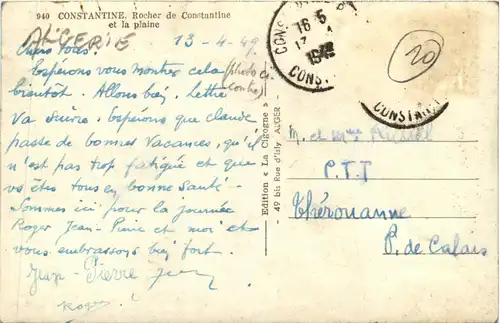 940 CONSTANTINE. Rocher de Constantine
et la plaine
ALGERIE
13-4-49
Chers tous.
Espérons vous montrer cela (photo ci
bientôt. Allons bien. Lettre contre)
va suivre. Espérons que claude
passe de bonnes vacances, qu'il
n'est pas trop fatigué et que
vs êtes tous en bonne santé.
Sommes ici pour la journée
Roger Jean-Pierre et moi et
vous embrassons bien fort.
Jean-Pierre
Roger
Edition « La Cigogne »
- 49 bis Rue d'Isly ALGER -
CONSTANTINE
16 5
17
20
M. et Mme
P.T.T
Thérouanne
P. de Calais